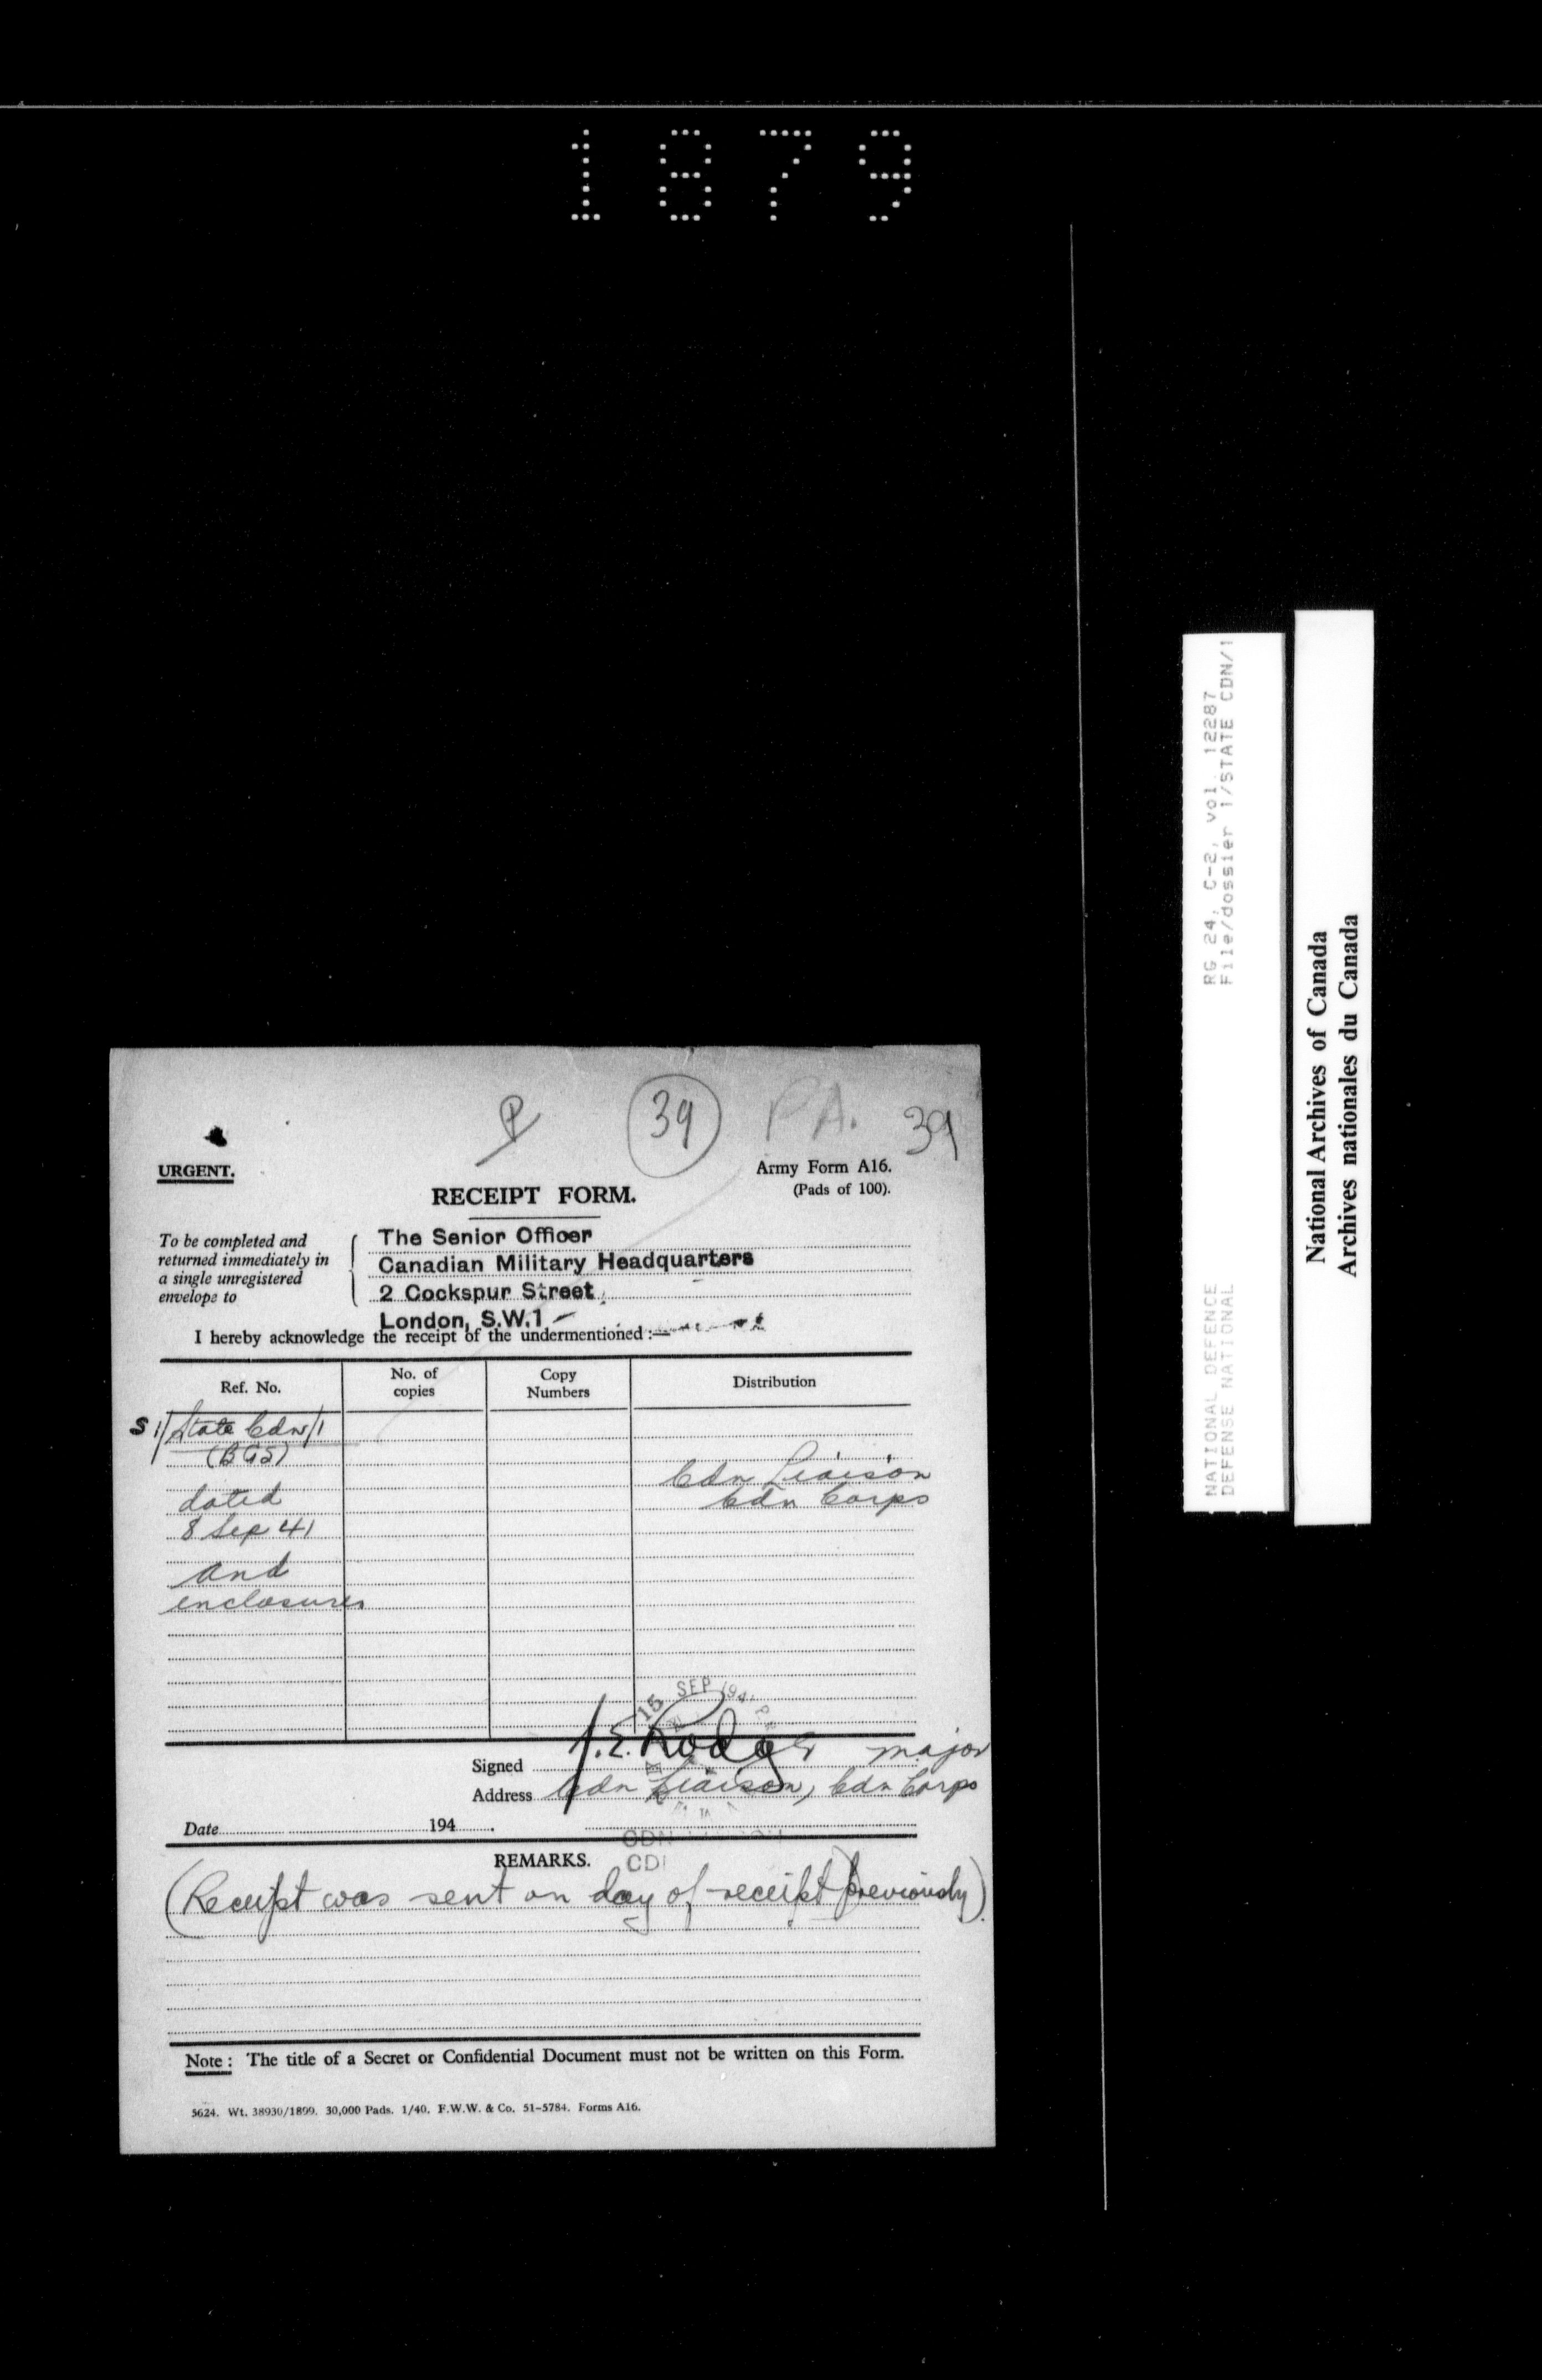 1879
39 PA. 39
URGENT.
Army Form A16.
(Pads of 100).
RECEIPT FORM.
To be completed and
returned immediately in
a single unregistered
envelope to
The Senior Officer
Canadian Military Headquarters
2 Cockspur Street
London, S.W.1
I hereby acknowledge the receipt of the undermentioned :—
Ref. No.
No. of
copies
Copy
Numbers
Distribution
S 1/State Cdn/1
(BGS)
dated
8 Sep 41
and
enclosures
Cdn Liaison
Cdn Corps
15 SEP 1941
Signed
Major
Address Cdn Liaison, Cdn Corps
Date 194 .
CDN
REMARKS.
(Receipt was sent on day of receipt previously)
Note : The title of a Secret or Confidential Document must not be written on this Form.
5624. Wt. 38930/1899. 30,000 Pads. 1/40. F.W.W. & Co. 51-5784. Forms A16.
NATIONAL DEFENCE RG 24, C-2, vol. 12287
DEFENSE NATIONAL File/dossier 1/STATE CDN/1
National Archives of Canada
Archives nationales du Canada